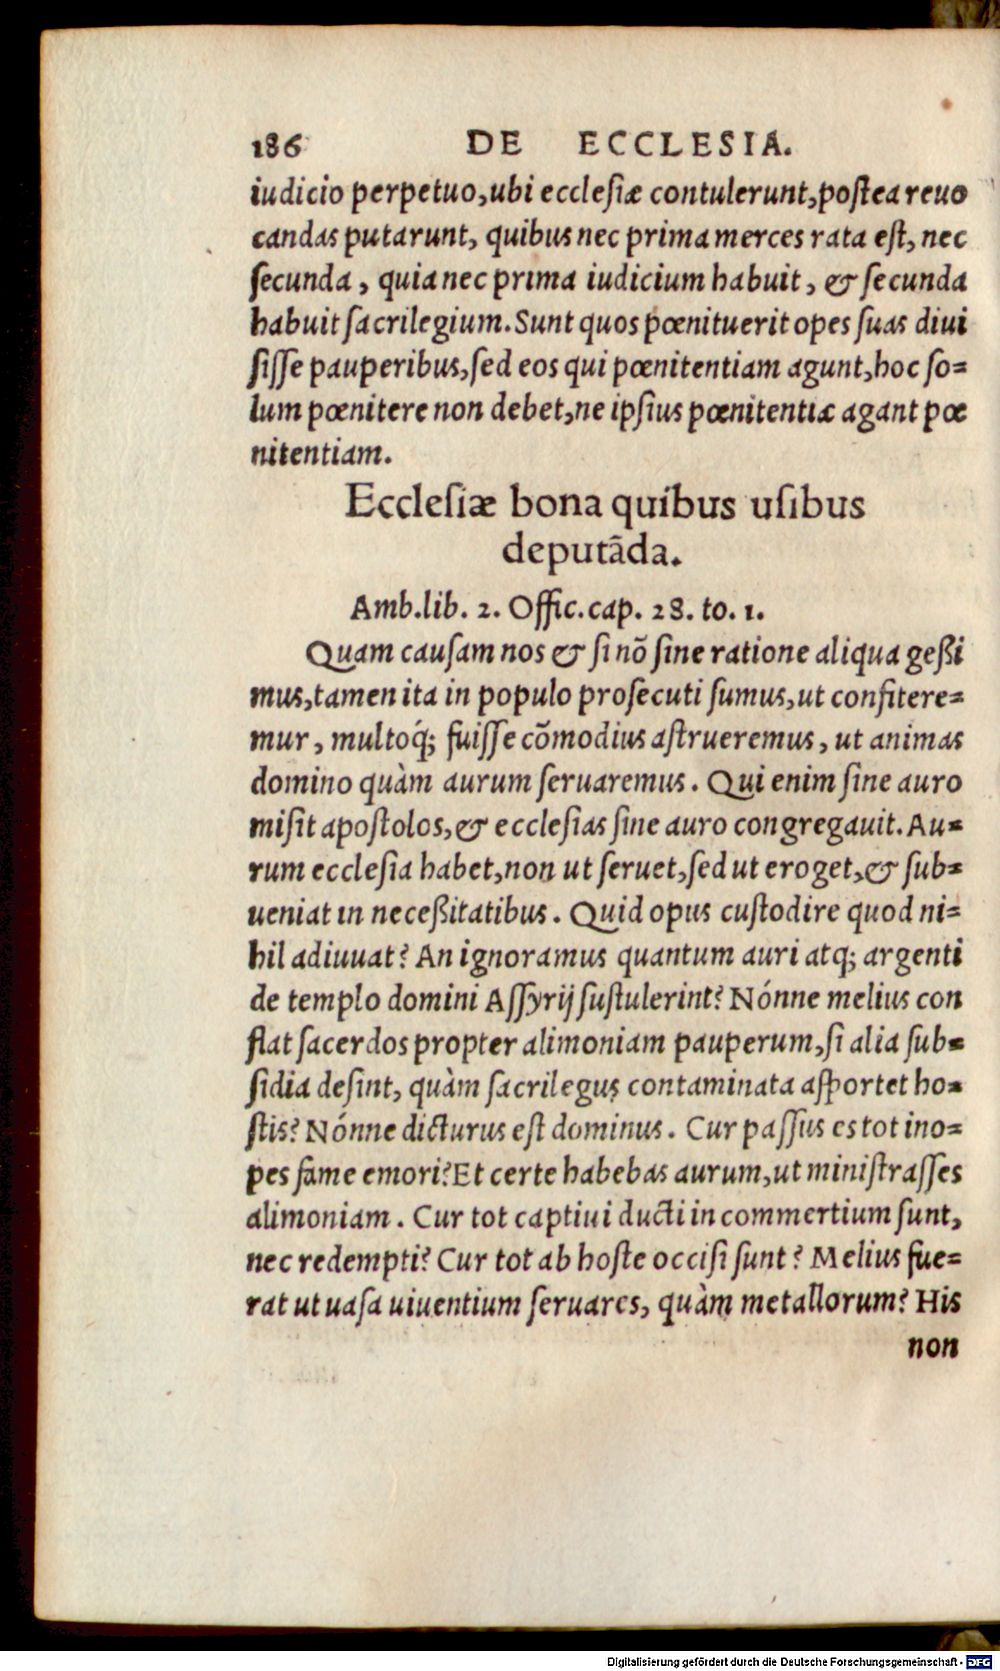 186 DE ECCLESIA.
iudicio perpetuo, ubi ecclesiæ contulerunt, postea reuo
candas putarunt, quibus nec prima merces rata est, nec
secunda, quia nec prima iudicium habuit, & secunda
habuit sacrilegium. Sunt quos pœnituerit opes suas diui
sisse pauperibus, sed eos qui pœnitentiam agunt, hoc so=
lum pœnitere non debet, ne ipsius pœnitentiæ agant pœ
nitentiam.
Ecclesiæ bona quibus usibus
deputãda.
Amb. lib. 2. Offic. cap. 28. to. 1.
Quam causam nos & si nõ sine ratione aliqua geßi
mus, tamen ita in populo prosecuti sumus, ut confitere=
mur, multoq́; fuisse cõmodius astrueremus, ut animas
domino quàm aurum seruaremus. Qui enim sine auro
misit apostolos, & ecclesias sine auro congregauit. Au=
rum ecclesia habet, non ut seruet, sed ut eroget, & sub=
ueniat in neceßitatibus. Quid opus custodire quod ni=
hil adiuuat? An ignoramus quantum auri atq; argenti
de templo domini Assyrij sustulerint? Nónne melius con
flat sacerdos propter alimoniam pauperum, si alia sub=
sidia desint, quàm sacrilegus contaminata asportet ho=
stis? Nónne dicturus est dominus. Cur passus es tot ino=
pes fame emori? Et certe habebas aurum, ut ministrasses
alimoniam. Cur tot captiui ducti in commertium sunt,
nec redempti? Cur tot ab hoste occisi sunt? Melius fue=
rat ut uasa uiuentium seruares, quàm metallorum? His
non
Digitalisierung gefördert durch die Deutsche Forschungsgemeinschaft - DFG